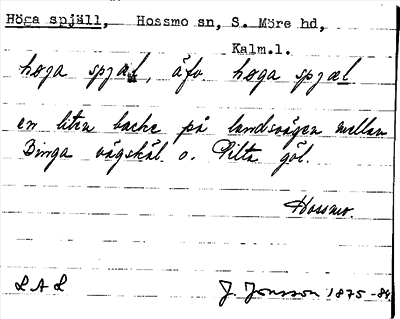 Höga spjäll, Hossmo sn, S. Möre hd,
Kalm.l.
høga spjæl, äfv. høga spjæl
en liten backe på landsvägen mellan
Binga vägskäl o. Pilta göl.
Hossmo.
L A L J. Jonsson 1875-84